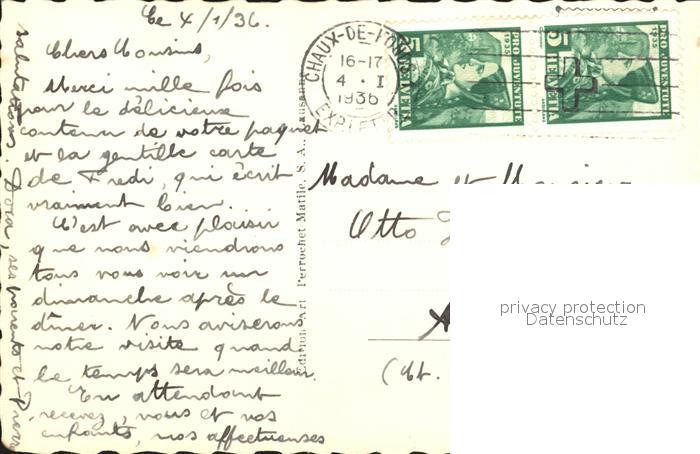 Le 4/1/36.
Chers Cousins,
Merci mille fois
pour le délicieux
contenu de votre paquet
et la gentille carte
de Fredi, qui écrit
vraiment bien.
C'est avec plaisir
que nous viendrons
tous vous voir un
dimanche après le
dîner. Nous aviserons
notre visite quand
le temps sera meilleur.
En attendant
recevez, vous et vos
enfants, nos affectueuses
salutations. Dora, ses parents et Pierre
Edition Art Perrochet Matile, S. A., Lausanne
CHAUX-DE-FONDS
16-17
4 · I
1936
EXP. LET
PRO JUVENTUTE
1935
5
HELVETIA
PRO JUVENTUTE
1935
5
HELVETIA
Madame et Monsieur
Otto
(Ct.
privacy protection
Datenschutz